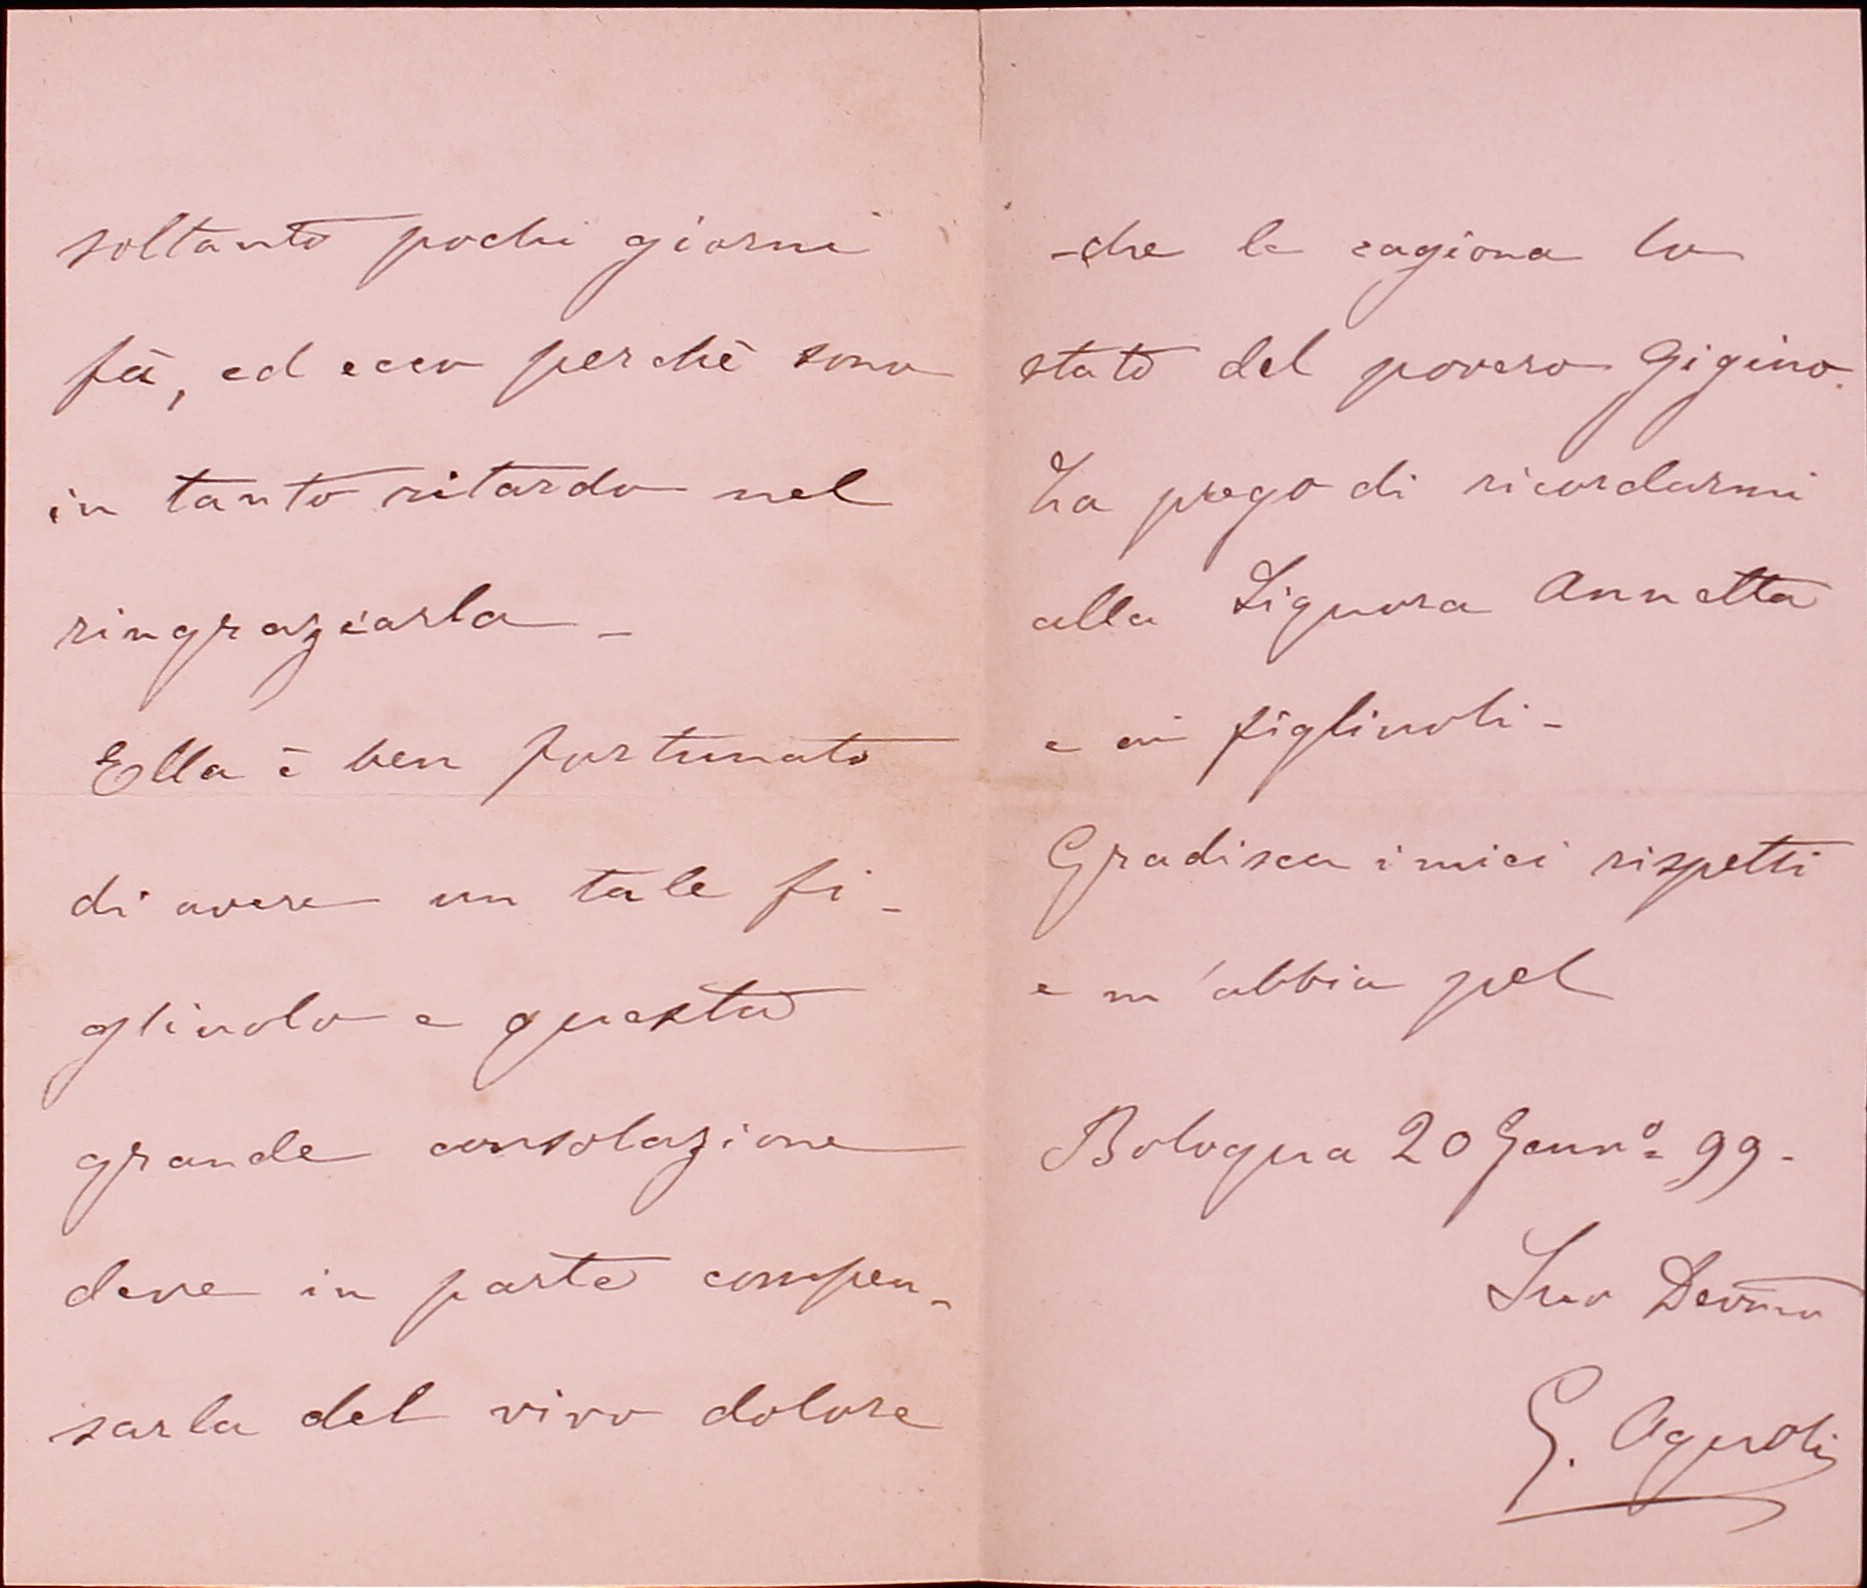 soltanto pochi giorni
fà, ed ecco perchè sono
in tanto ritardo nel
ringraziarla -
Ella è ben fortunato
di avere un tale fi-
gliuolo e questa
grande consolazione
deve in parte compen-
sarla del vivo dolore
-che le cagiona lo
stato del povero Gigino.
La prego di ricordarmi
alla Signora Annetta
e ai figliuoli -
Gradisca i miei rispetti
e m'abbia pel
Bologna 20 Gennº 99.
Suo Devmo
G. Agnoli